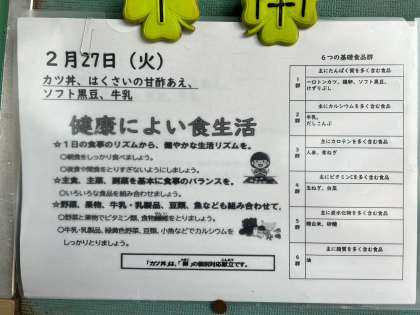 ２月27日（火）
カツ丼、はくさいの甘酢あえ、
ソフト黒豆、牛乳
健康によい食生活
☆１日の食事のリズムから、健やかな生活リズムを。
○朝食をしっかり食べましょう。
○夜食や間食をとりすぎないようにしましょう。
☆主食、主菜、副菜を基本に食事のバランスを。
○いろいろな食品を組み合わせましょう。
☆野菜、果物、牛乳・乳製品、豆類、魚なども組み合わせて。
○野菜と果物でビタミン類、食物繊維をとりましょう。
○牛乳・乳製品、緑黄色野菜、豆類、小魚などでカルシウムを
しっかりとりましょう。
「カツ丼」は、「卵」の個別対応献立です。
６つの基礎食品群
1群
主にたんぱく質を多く含む食品
一口トンカツ、鶏卵、ソフト黒豆、
けずりぶし
2群
主にカルシウムを多く含む食品
牛乳、
だしこんぶ
3群
主にカロテンを多く含む食品
人参、青ねぎ
4群
主にビタミンCを多く含む食品
玉ねぎ、白菜
5群
主に炭水化物を多く含む食品
精白米、砂糖
6群
主に脂質を多く含む食品
油